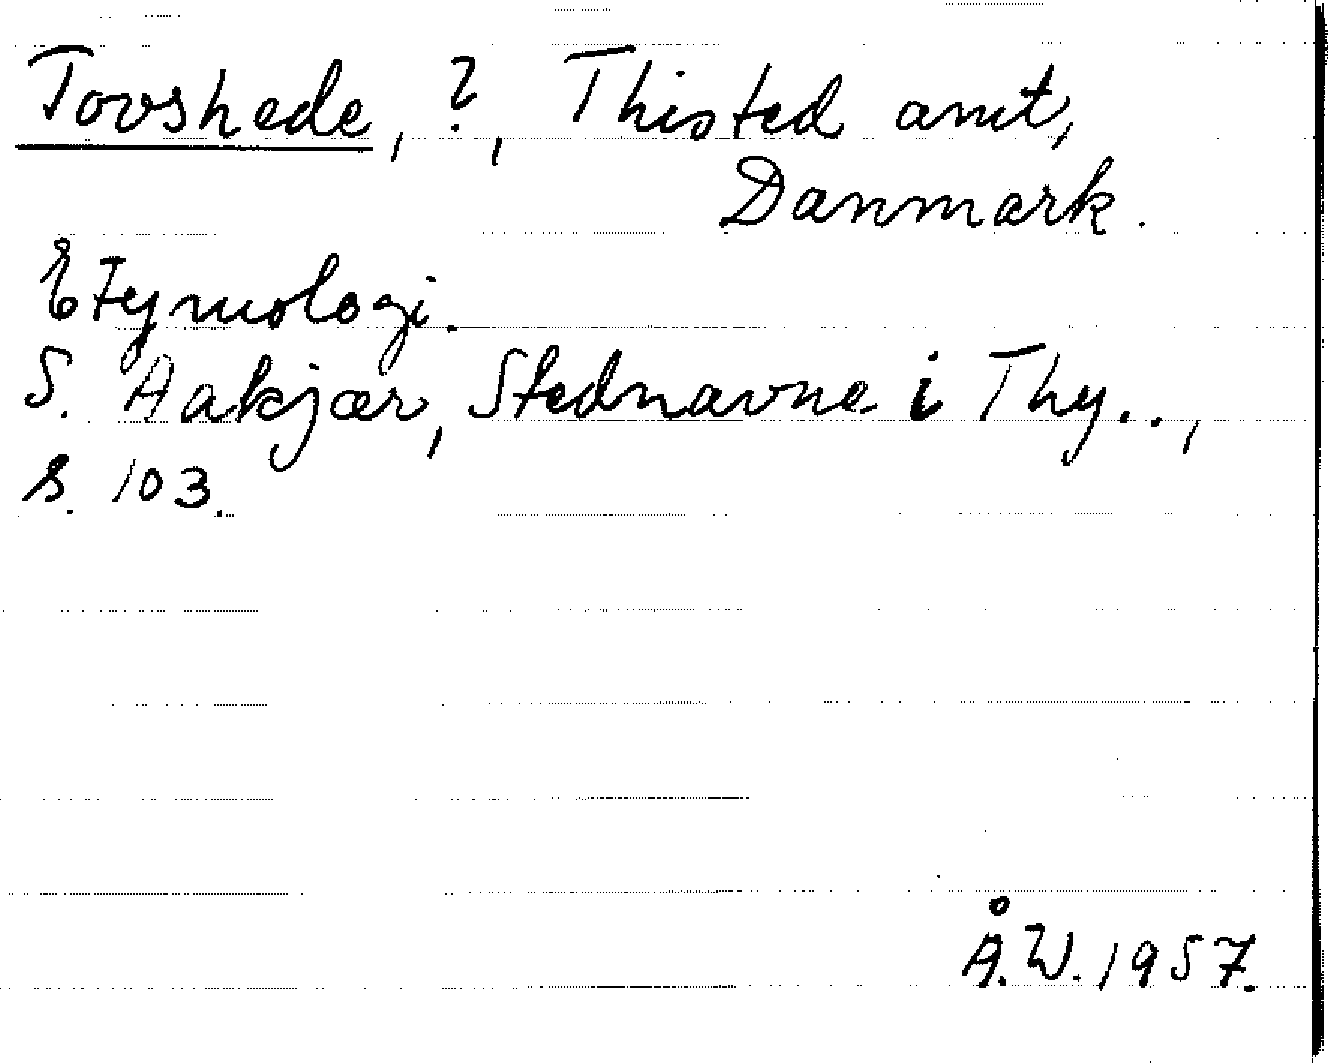 Tovshede, ?, Thisted amt,
Danmark.
Etymologi.
S. Aakjær, Stednavne i Thy..,
s. 103.
Å.W. 1957.